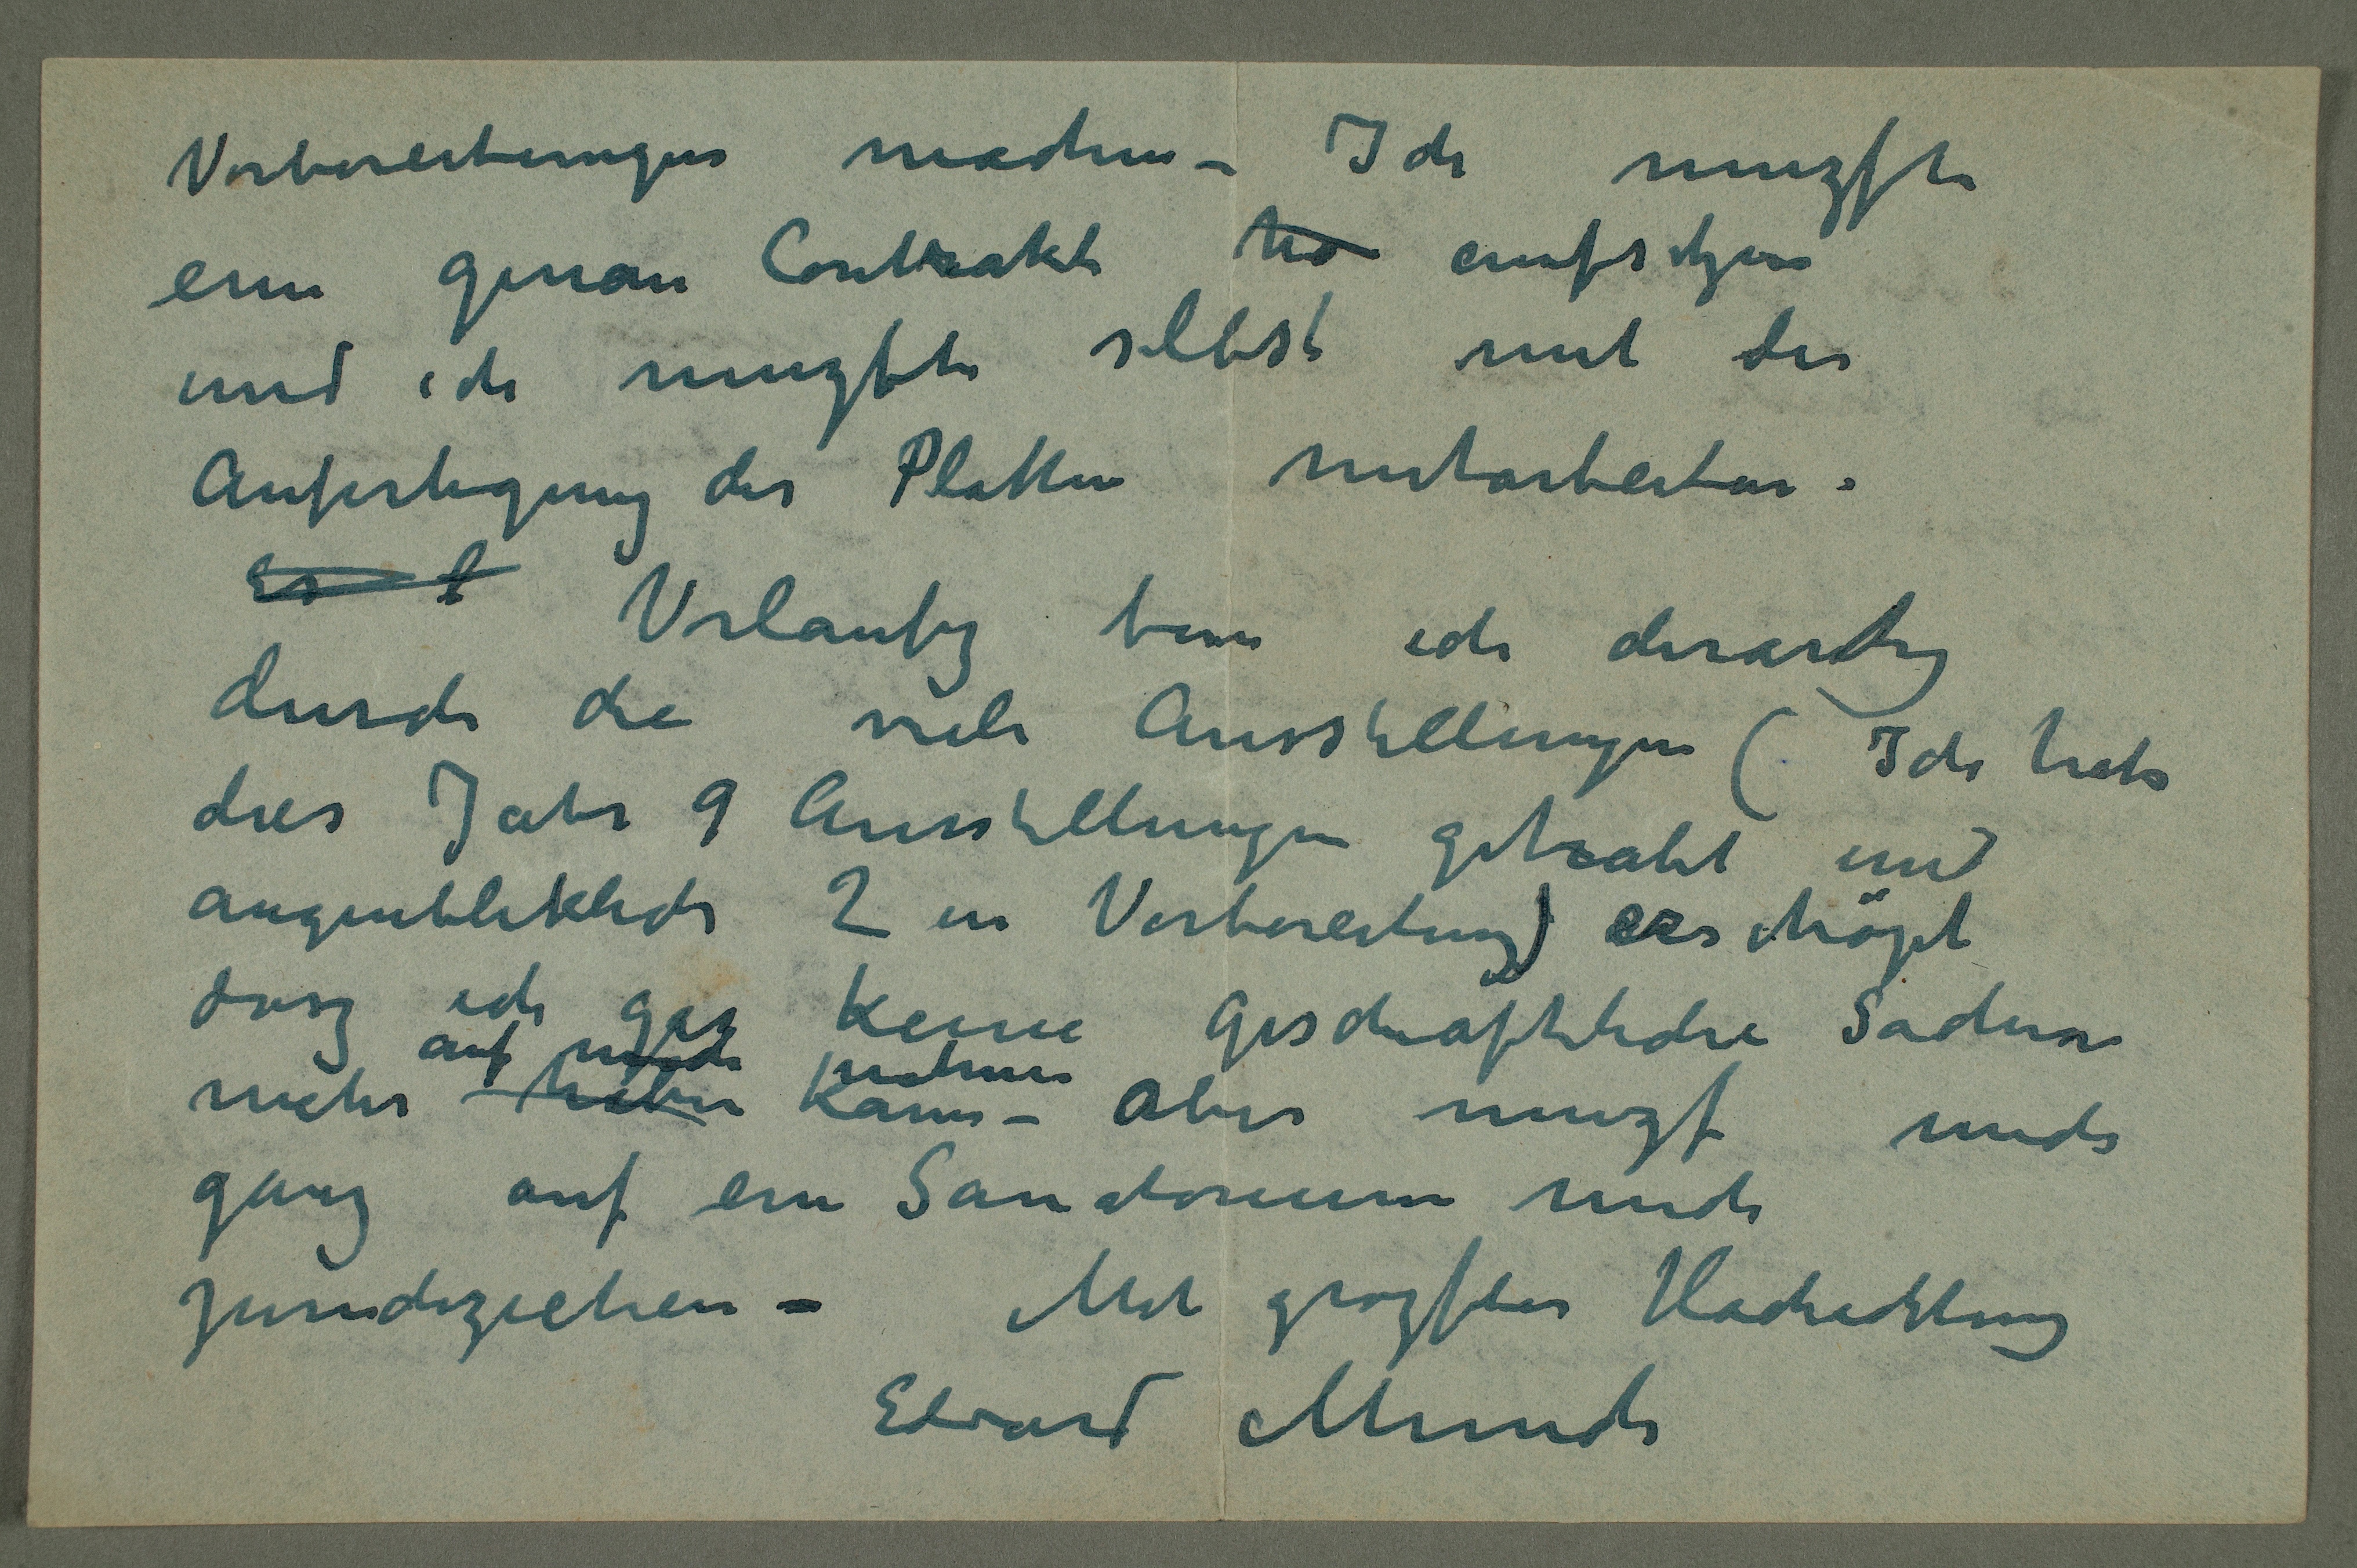 Vorbereitungen machen – Ich muzste
ein genau Contrakt ha aufsetzen
und ich muzste selbst mit der
Anfertigung der Platten mitarbeiten.
Es l Vorlaufig bin ich derartig
durch die viele Ausstellungen (Ich hab
dies Jahr 9 Ausstellungen gehabt und
augenbliklich 2 in Vorbereitung) erschöpt
dasz ich gaz keine geschäftsliche Sachen
auf mich nehmen
mehr haben kann – aber muzs mich
ganz auf ein Sanatorium mich
zurückziehen – Mit grözster Hochachtung
Edvard Munch